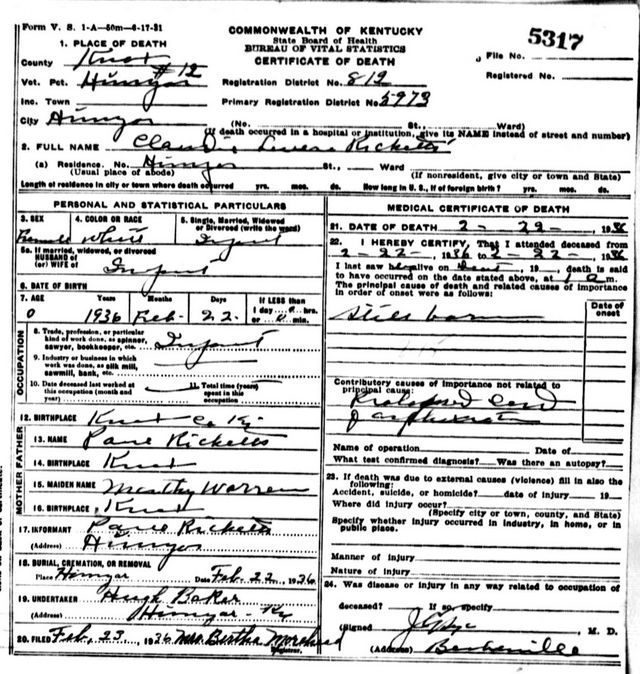 Form V. S. 1-A—50m—6-17-31
COMMONWEALTH OF KENTUCKY
State Board of Health
BUREAU OF VITAL STATISTICS
CERTIFICATE OF DEATH
File No. 5317
Registered No.
1. PLACE OF DEATH
County Knox
Vot. Pct. Himyar #12
Registration District No. 812
Inc. Town
Primary Registration District No. 5973
City Himyar (No. St., Ward)
(If death occurred in a hospital or institution, give its NAME instead of street and number)
2. FULL NAME Ricketts
(a) Residence. No. Himyar St., Ward
(Usual place of abode) (If nonresident, give city or town and State)
Length of residence in city or town where death occurred yrs. mos. ds. How long in U. S., if of foreign birth? yrs. mos. ds.
PERSONAL AND STATISTICAL PARTICULARS
3. SEX 4. COLOR OR RACE 5. Single, Married, Widowed
or Divorced (write the word)
Female White Infant
5a. If married, widowed, or divorced
HUSBAND of
(or) WIFE of Infant
6. DATE OF BIRTH
7. AGE Years Months Days If LESS than
1 day 0 hrs.
or 0 min.
0 1936 Feb 22
OCCUPATION
8. Trade, profession, or particular
kind of work done, as spinner,
sawyer, bookkeeper, etc. Infant
9. Industry or business in which
work was done, as silk mill,
sawmill, bank, etc.
10. Date deceased last worked at
this occupation (month and
year)
11. Total time (years)
spent in this
occupation
12. BIRTHPLACE Knox Co Ky
FATHER
13. NAME Ricketts
14. BIRTHPLACE Knox
MOTHER
15. MAIDEN NAME Marthy Warren
16. BIRTHPLACE Knox
17. INFORMANT Ricketts
(Address) Himyar
18. BURIAL, CREMATION, OR REMOVAL
Place Himyar Date Feb. 22, 1936
19. UNDERTAKER Hugh Baker
(Address) Himyar - Ky
20. FILED Feb, 23, 1936 Mrs. Bertha
Registrar.
MEDICAL CERTIFICATE OF DEATH
21. DATE OF DEATH 2 - 22 - 1936
22. I HEREBY CERTIFY, That I attended deceased from
2 - 22 - 1936 to 2 - 22 - 1936
I last saw h alive on , 19 , death is said
to have occurred on the date stated above, at 1 a m.
The principal cause of death and related causes of importance
in order of onset were as follows:
Date of
onset
Still born
Contributory causes of importance not related to
principal cause:
Prolapsed Cord
Name of operation Date of
What test confirmed diagnosis? Was there an autopsy?
23. If death was due to external causes (violence) fill in also the
following:
Accident, suicide, or homicide? date of injury 19
Where did injury occur?
(Specify city or town, county, and State)
Specify whether injury occurred in industry, in home, or in
public place.
Manner of injury
Nature of injury
24. Was disease or injury in any way related to occupation of
deceased? If so, specify
(Signed) M. D.
(Address)